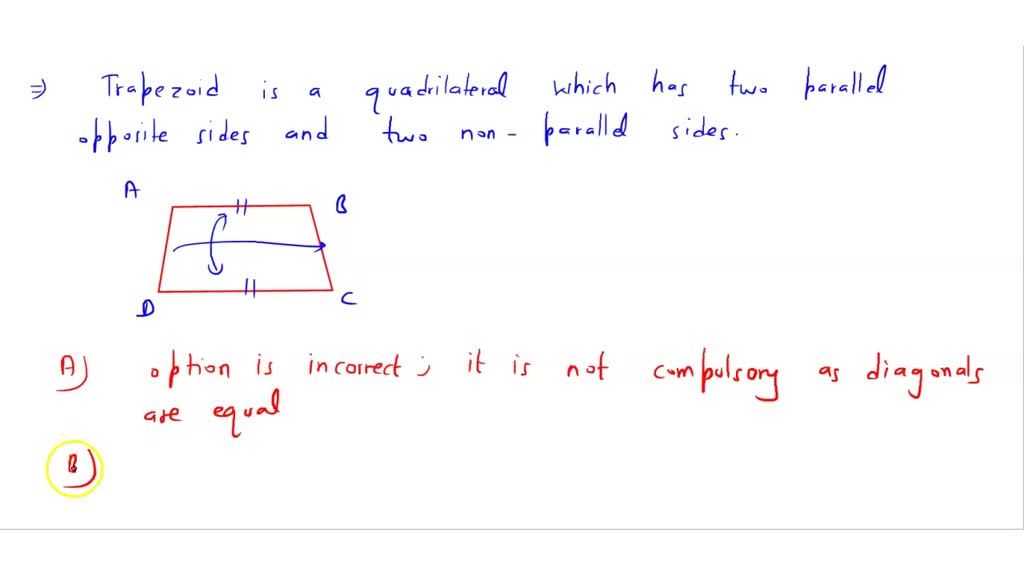 ⇒ Trapezoid is a quadrilateral which has two parallel
opposite sides and two non-parallel sides.
A
B
D
C
A) option is incorrect; it is not compulsory as diagonals
are equal
B)